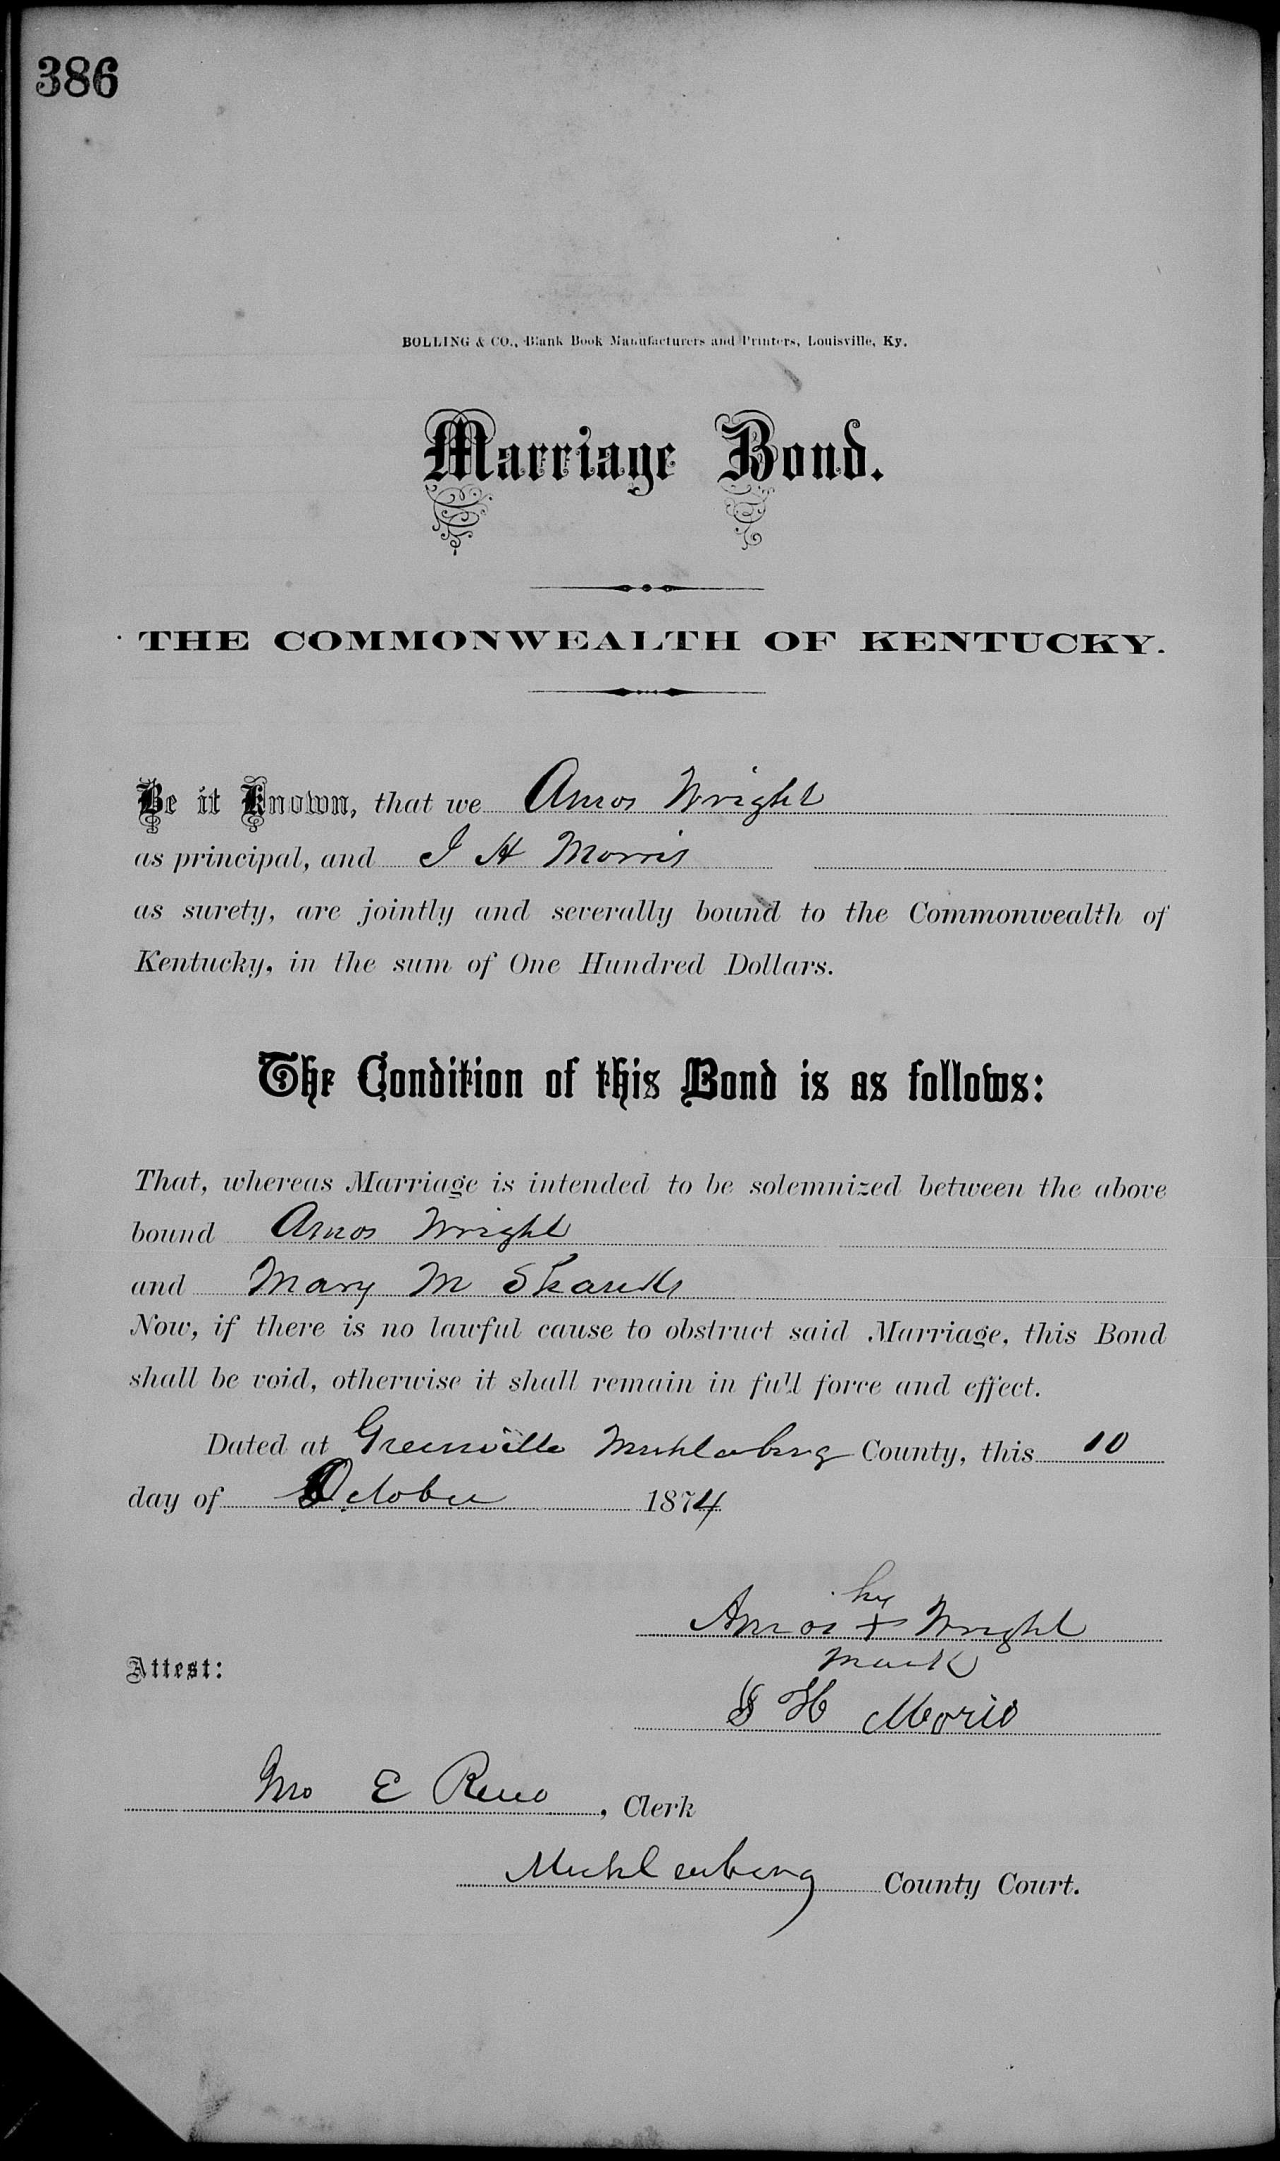 386
BOLLING & CO., Blank Book Manufacturers and Printers, Louisville, Ky.
Marriage Bond.
THE COMMONWEALTH OF KENTUCKY.
Be it Known, that we Amos Wright
as principal, and J H Morris
as surety, are jointly and severally bound to the Commonwealth of
Kentucky, in the sum of One Hundred Dollars.
The Condition of this Bond is as follows:
That, whereas Marriage is intended to be solemnized between the above
bound Amos Wright
and Mary M
Now, if there is no lawful cause to obstruct said Marriage, this Bond
shall be void, otherwise it shall remain in full force and effect.
Dated at Greenville Muhlenburg County, this 10
day of October 1874
his
Amos + Wright
mark
Attest:
J H Moris
Jno E Reno, Clerk
Muhlenburg County Court.